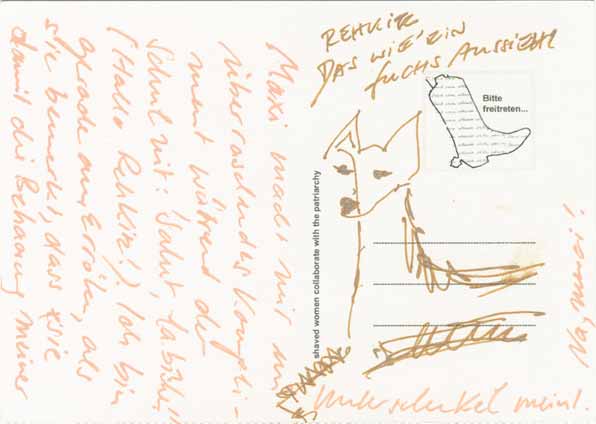 REHKITZ
DAS WIE EIN
FUCHS AUSSIEHT
Bitte
freitreten...
shaved women collaborate with the patriarchy
Maxi macht mir ein
überraschendes Kompli-
ment während der
mit: Salut, la biche!
(Hallo Rehkitz!). Ich bin
gerade am Erröten, als
sie bemerkt, dass sie
damit die Behaarung meiner
Unterschenkel meint.
Na, merci!